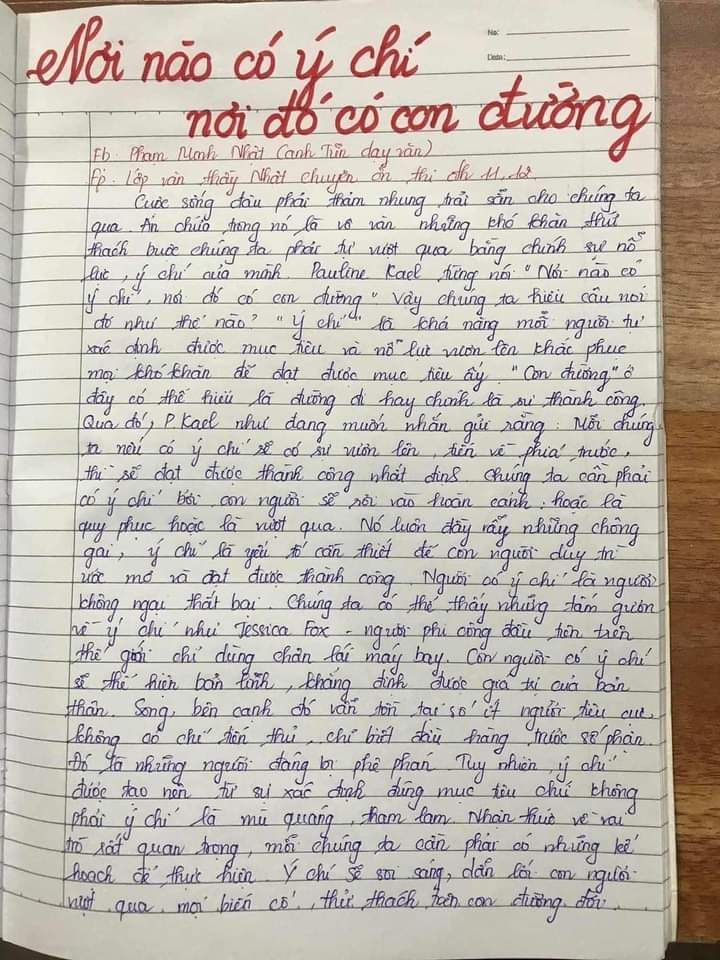 No:
Date:
Nơi nào có ý chí
nơi đó có con đường
Fb: Phạm Minh Nhật (anh Tiễn dạy văn)
Pp: Lớp văn thầy Nhật chuyên ôn thi đh 11, 12.
Cuộc sống đâu phải thảm nhung trải sẵn cho chúng ta
qua. Ẩn chứa trong nó là vô vàn những khó khăn thử
thách buộc chúng ta phải tự vượt qua bằng chính sự nỗ
lực, ý chí của mình. Pauline Kael từng nói "Nơi nào có
ý chí, nơi đó có con đường" Vậy chúng ta hiểu câu nói
đó như thế nào? "Ý chí" là khả năng mỗi người tự
xác định được mục tiêu và nỗ lực vươn lên khắc phục
mọi khó khăn để đạt được mục tiêu ấy. "Con đường" ở
đây có thể hiểu là đường đi hay chính là sự thành công.
Qua đó, P.Kael như đang muốn nhắn gửi rằng: Mỗi chúng
ta nếu có ý chí sẽ có sự vươn lên, tiến về phía trước,
thì sẽ đạt được thành công nhất định. Chúng ta cần phải
có ý chí bởi con người sẽ rơi vào hoàn cảnh: hoặc là
quy phục hoặc là vượt qua. Nó luôn đầy rẫy những chông
gai, ý chí là yếu tố cần thiết để con người duy trì
ước mơ và đạt được thành công. Người có ý chí là người
không ngại thất bại. Chúng ta có thể thấy những tấm gương
về ý chí như Jessica Fox - người phi công đầu tiên trên
thế giới chỉ dùng chân lái máy bay. Con người có ý chí
sẽ thể hiện bản lĩnh, khẳng định được giá trị của bản
thân. Song, bên cạnh đó vẫn tồn tại số ít người tiêu cực,
không có chí tiến thủ, chỉ biết đầu hàng trước số phận.
Đó là những người đáng bị phê phán. Tuy nhiên, ý chí
được tạo nên từ sự xác định đúng mục tiêu chứ không
phải ý chí là mù quáng, tham lam. Nhận thức về vai
trò rất quan trọng, mỗi chúng ta cần phải có những kế
hoạch để thực hiện. Ý chí sẽ soi sáng, dẫn lối con người
vượt qua mọi biến cố, thử thách trên con đường đời.